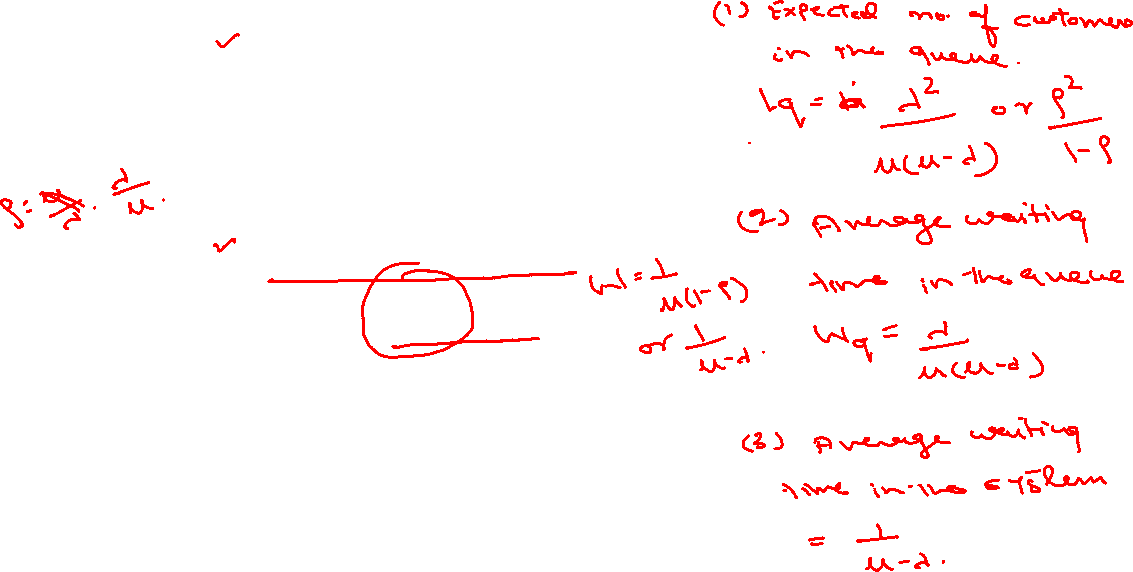 (1) Expected no. of customers
in the queue.
Lq = λ²/μ(μ-λ) or ρ²/1-ρ
ρ = λ/μ.
(2) Average waiting
time in the queue
Wq = λ/μ(μ-λ)
W = 1/μ(1-ρ)
or 1/μ-λ.
(3) Average waiting
time in the system
= 1/μ-λ.